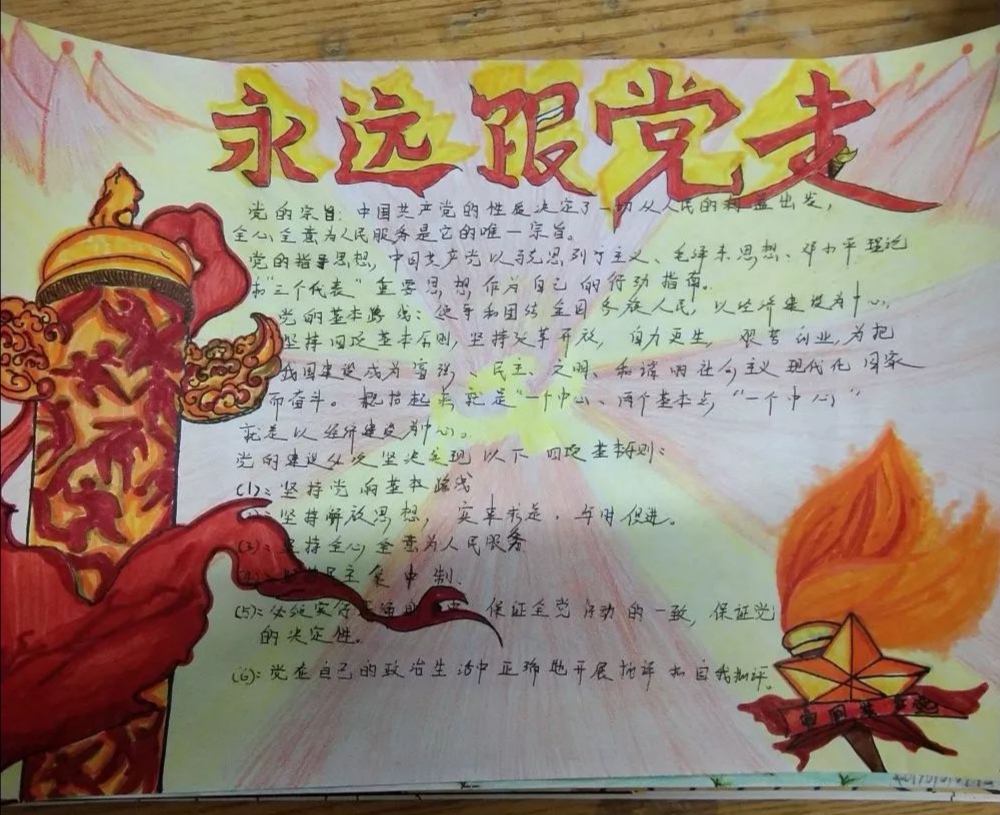 永远跟党走
党的宗旨：中国共产党的性质决定了一切从人民的利益出发，
全心全意为人民服务是它的唯一宗旨。
党的指导思想，中国共产党以马克思列宁主义、毛泽东思想、邓小平理论
和"三个代表"重要思想作为自己的行动指南。
党的基本路线：领导和团结全国多族人民，以经济建设为中心，
坚持四项基本原则，坚持改革开放，自力更生，艰苦创业，为把
我国建设成为富强、民主、文明、和谐的社会主义现代化国家
而奋斗。概括起来就是"一个中心、两个基本点，"一个中心"
就是以经济建设为中心。
党的建设必须坚决实现以下四项基本原则：
(1)：坚持党的基本路线
：坚持解放思想，实事求是，与时俱进。
(3)：坚持全心全意为人民服务
民主集中制.
(5)：保证全党行动的一致，保证党
的决定性。
(6)：党在自己的政治生活中正确地开展批评和自我批评。